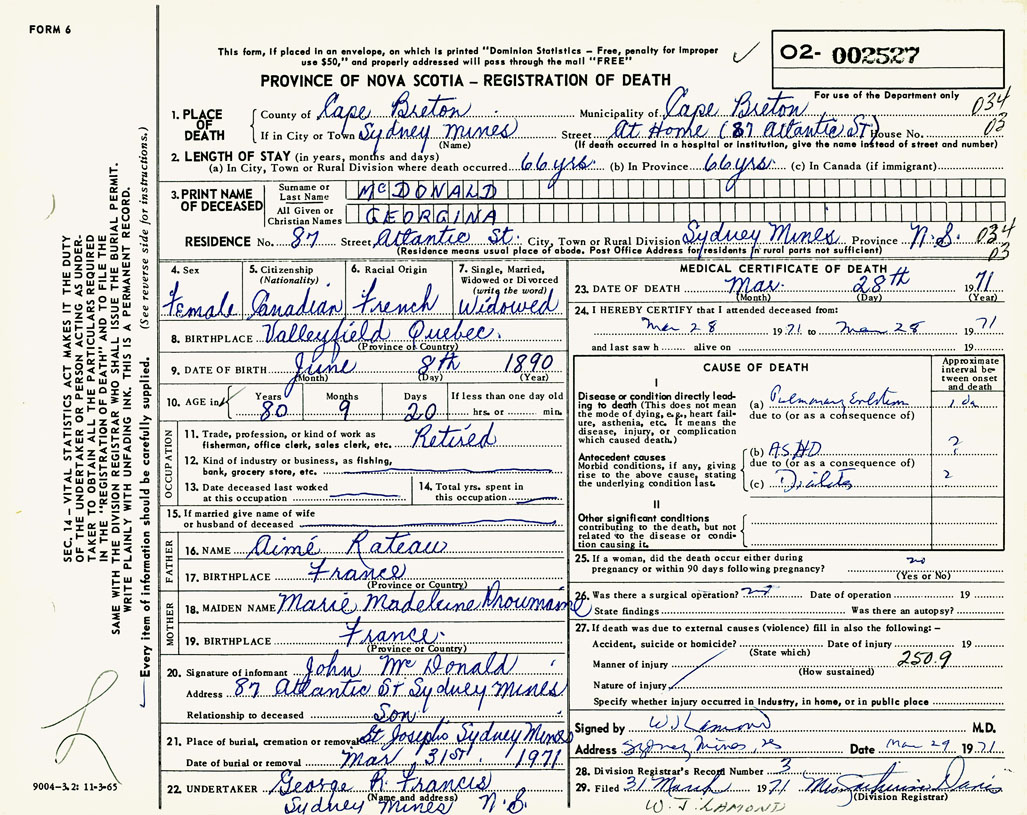 FORM 6
This form, if placed in an envelope, on which is printed "Dominion Statistics – Free, penalty for improper
use $50," and properly addressed will pass through the mail "FREE"
PROVINCE OF NOVA SCOTIA – REGISTRATION OF DEATH
O2- 002527
For use of the Department only
1. PLACE OF DEATH
County of Cape Breton Municipality of Cape Breton 034
If in City or Town Sydney Mines Street At Home (87 Atlantic St) House No. 03
(Name) (If death occurred in a hospital or institution, give the name instead of street and number)
2. LENGTH OF STAY (in years, months and days)
(a) In City, Town or Rural Division where death occurred 66 yrs. (b) In Province 66 yrs. (c) In Canada (if immigrant)
3. PRINT NAME OF DECEASED
Surname or Last Name McDONALD
All Given or Christian Names GEORGINA
RESIDENCE No. 87 Street Atlantic St. City, Town or Rural Division Sydney Mines Province N.S. 034
(Residence means usual place of abode. Post Office Address for residents in rural parts not sufficient) 03
4. Sex Female
5. Citizenship (Nationality) Canadian
6. Racial Origin French
7. Single, Married, Widowed or Divorced (write the word) Widowed
8. BIRTHPLACE Valleyfield Quebec.
(Province or Country)
9. DATE OF BIRTH June 8th 1890
(Month) (Day) (Year)
10. AGE in Years 80 Months 9 Days 20 If less than one day old
hrs. or min.
OCCUPATION
11. Trade, profession, or kind of work as
fisherman, office clerk, sales clerk, etc. Retired
12. Kind of industry or business, as fishing,
bank, grocery store, etc.
13. Date deceased last worked
at this occupation
14. Total yrs. spent in
this occupation
15. If married give name of wife
or husband of deceased
FATHER
16. NAME Aimé Rateau
17. BIRTHPLACE France
(Province or Country)
MOTHER
18. MAIDEN NAME Marie Madeleine
19. BIRTHPLACE France.
(Province or Country)
20. Signature of informant John McDonald
Address 87 Atlantic St Sydney Mines
Relationship to deceased Son
21. Place of burial, cremation or removal St Joseph's Sydney Mines
Date of burial or removal Mar 31st. 1971
22. UNDERTAKER George R. Francis
(Name and address)
Sydney Mines N.S.
MEDICAL CERTIFICATE OF DEATH
23. DATE OF DEATH Mar. 28th 1971
(Month) (Day) (Year)
24. I HEREBY CERTIFY that I attended deceased from:
Mar 28 1971 to Mar 28 1971
and last saw h alive on 19
CAUSE OF DEATH
Approximate interval be-
tween onset
and death
I
Disease or condition directly lead-
ing to death (This does not mean
the mode of dying, e.g., heart fail-
ure, asthenia, etc. It means the
disease, injury, or complication
which caused death.)
(a) Pulmonary Embolism 1 da
due to (or as a consequence of)
Antecedent causes
Morbid conditions, if any, giving
rise to the above cause, stating
the underlying condition last.
(b) ASHD ?
due to (or as a consequence of)
(c) Diabetes
II
Other significant conditions
contributing to the death, but not
related to the disease or condi-
tion causing it.
25. If a woman, did the death occur either during
pregnancy or within 90 days following pregnancy? no
(Yes or No)
26. Was there a surgical operation? no Date of operation 19
State findings Was there an autopsy?
27. If death was due to external causes (violence) fill in also the following: –
Accident, suicide or homicide? Date of injury 19
(State which)
Manner of injury 250.9
(How sustained)
Nature of injury
Specify whether injury occurred in Industry, in home, or in public place
Signed by W J Lamond M.D.
Address Sydney Mines, NS Date Mar 29 1971
28. Division Registrar's Record Number 3
29. Filed 31 March 1971 Davis
(Division Registrar)
W. J. LAMOND
SEC. 14 – VITAL STATISTICS ACT MAKES IT THE DUTY
OF THE UNDERTAKER OR PERSON ACTING AS UNDER-
TAKER TO OBTAIN ALL THE PARTICULARS REQUIRED
IN THE "REGISTRATION OF DEATH" AND TO FILE THE
SAME WITH THE DIVISION REGISTRAR WHO SHALL ISSUE THE BURIAL PERMIT.
WRITE PLAINLY WITH UNFADING INK. THIS IS A PERMANENT RECORD.
Every item of information should be carefully supplied. (See reverse side for instructions.)
9004-3.2: 11-3-65